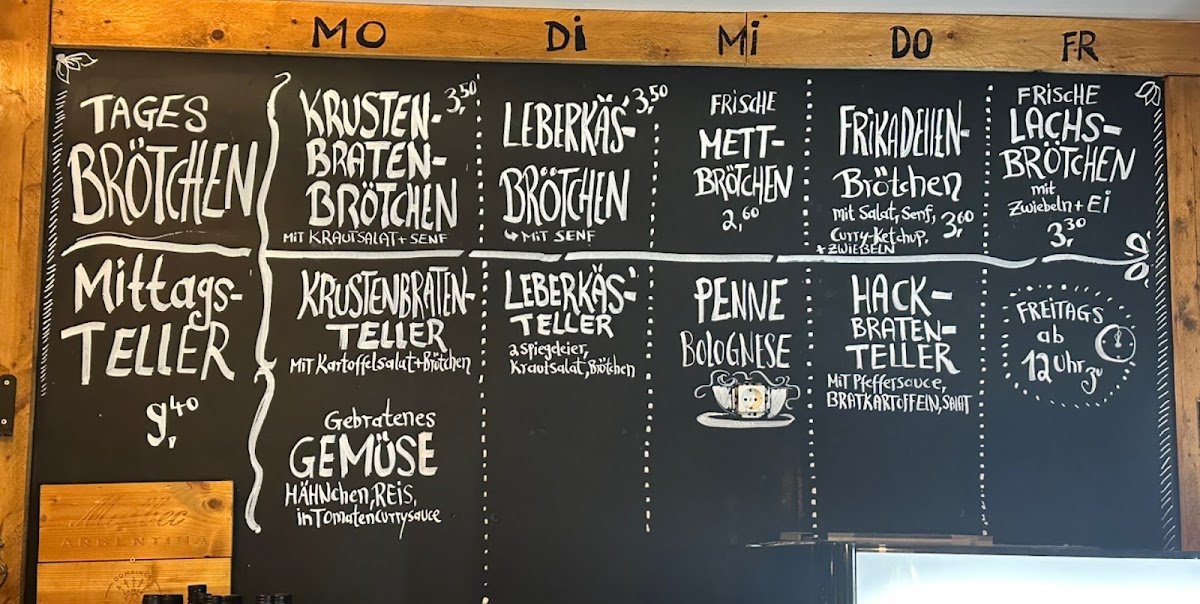 MO DI Mi DO FR
TAGES
BRÖTCHEN
KRUSTEN-
BRATEN-
BRÖTCHEN
3,50
MIT KRAUTSALAT + SENF
LEBERKÄS'-
BRÖTCHEN
3,50
↳ MIT SENF
FRISCHE
METT-
BRÖTCHEN
2,60
FRIKADELLEN-
Brötchen
mit Salat, Senf,
Curry-Ketchup,
+ ZWIEBELN
3,60
FRISCHE
LACHS-
BRÖTCHEN
mit
Zwiebeln + Ei
3,30
Mittags-
TELLER
9,40
KRUSTENBRATEN-
TELLER
Mit Kartoffelsalat + Brötchen
Gebratenes
GEMÜSE
HÄHNchen, REIS,
in Tomatencurrysauce
LEBERKÄS'-
TELLER
2 Spiegeleier,
Krautsalat, Brötchen
PENNE
BOLOGNESE
HACK-
BRATEN-
TELLER
Mit Pfeffersauce,
BRATKARTOFFELN, SALAT
FREITAGS
ab
12 Uhr zu
ARGENTINA